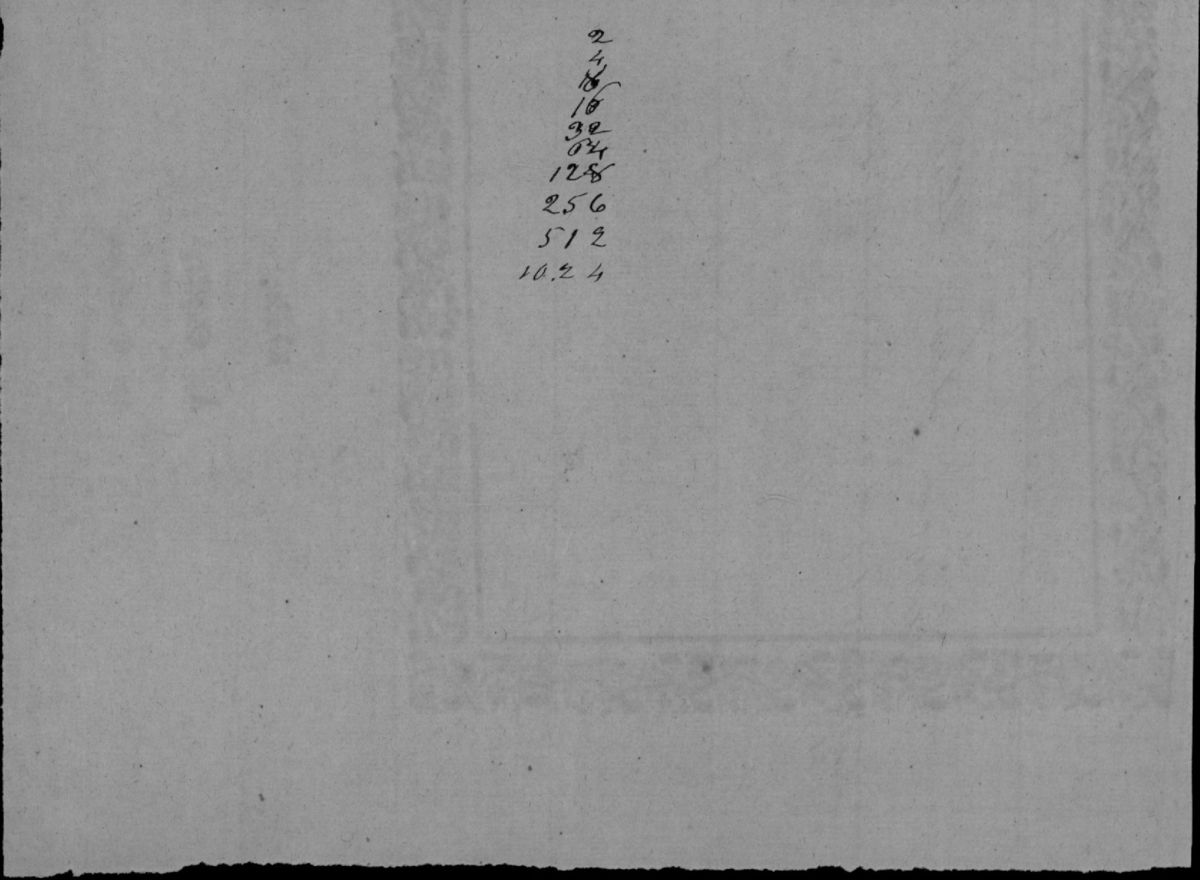 2
4
16
32
64
128
256
512
10.24